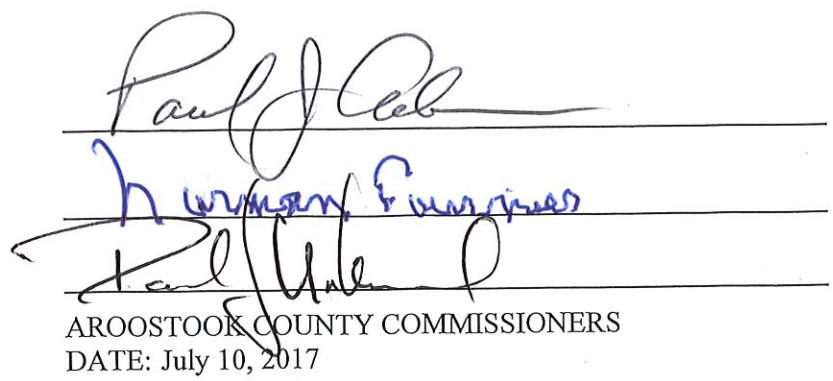 Paul J
Norman Fournier
Paul J
AROOSTOOK COUNTY COMMISSIONERS
DATE: July 10, 2017